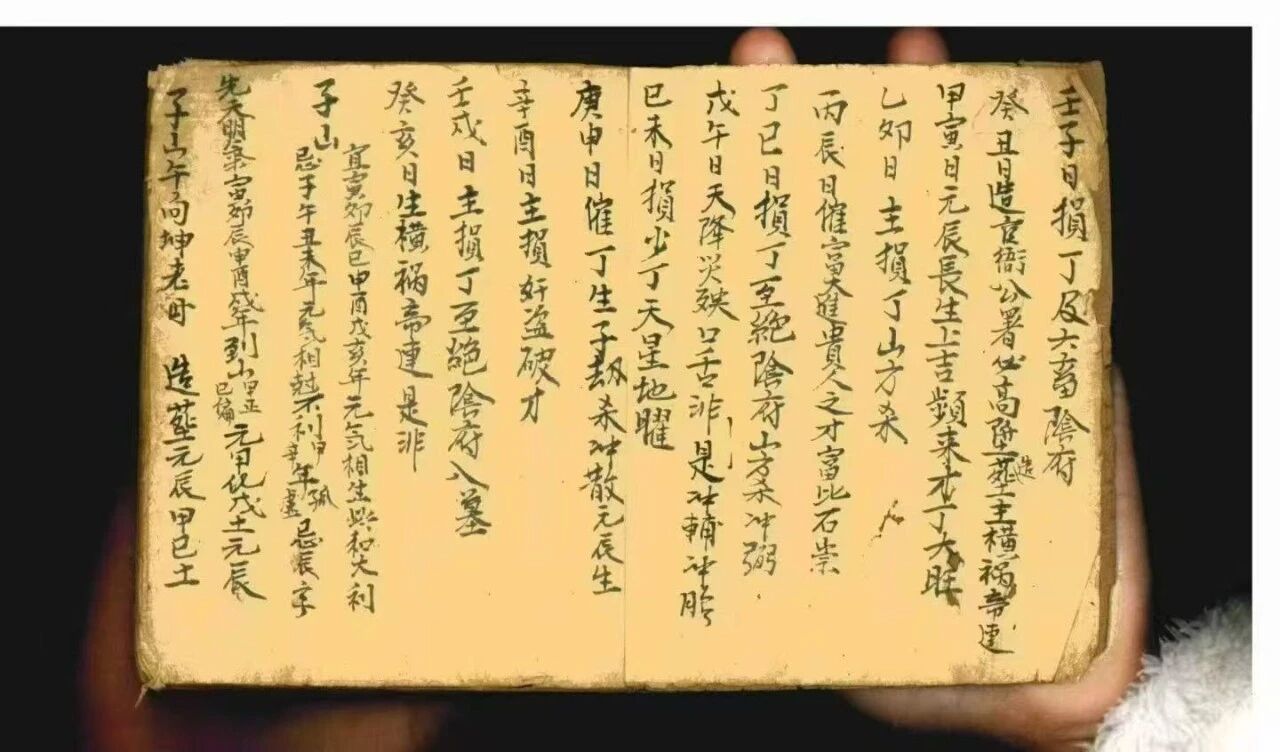 壬子日損丁及六畜陰府
癸丑日造官衙公署必高陞造塟主橫禍帝連
甲寅日元辰長生上吉頻来才丁大旺
乙夘日主損丁山方杀
丙辰日催富大進貴人之才富比石崇
丁巳日損丁至絶陰府山方杀冲弼
戊午日天降災殃口舌非是冲輔冲
巳未日損少丁天星地曜
庚申日催丁生子刼杀冲散元辰生
辛酉日主損奸盗破才
壬戍日主損丁至絶陰府入墓
癸亥日生橫禍帝連是非
子山
宜寅夘辰巳申酉戍亥年元气相生比和大利
忌子午丑未年元气相尅不利甲辛年孤虚忌辰字
先天明秉寅夘辰申酉戍年到山甲巳正偏元甲化戊土元辰
子山午向坤老母 造塟元辰甲巳土